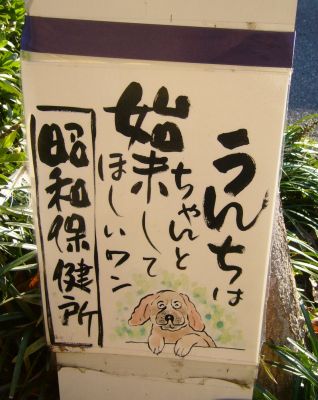 うんちは
ちゃんと
始末して
ほしいワン
昭和保健所